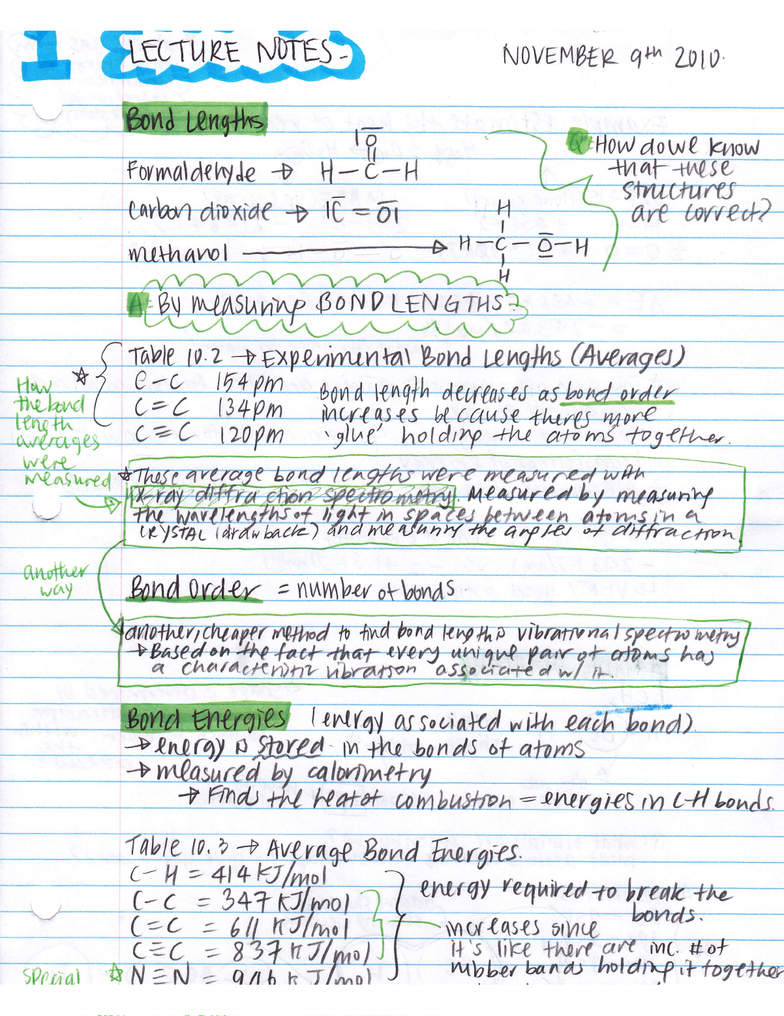 1 LECTURE NOTES - NOVEMBER 9th 2010.
Bond Lengths
Formaldehyde → H-C-H
|O̅
||
Q: How do we know
that these
structures
are correct?
Carbon dioxide → |C̅ = O̅|
methanol → H-C-O̲̅-H
H
H
A: By measuring BOND LENGTHS?
Table 10.2 → Experimental Bond Lengths (Averages)
C-C 154pm
C=C 134pm
C≡C 120pm
Bond length decreases as bond order
increases because theres more
'glue' holding the atoms together.
How
the bond
length
averages
were
measured
☆These average bond lengths were measured with
X-ray diffraction spectrometry. Measured by measuring
the wavelengths of light in spaces between atoms in a
CRYSTAL (drawback) and measuring the angles of diffraction
another
way
Bond Order = number of bonds
another, cheaper method to find bond length is vibrational spectrometry
→ Based on the fact that every unique pair of atoms has
a characteristic vibration associated w/ it.
Bond Energies (energy associated with each bond)
→ energy is stored in the bonds of atoms
→ measured by calorimetry
→ Finds the heat of combustion = energies in C-H bonds.
Table 10.3 → Average Bond Energies.
C-H = 414 KJ/mol
C-C = 347 KJ/mol
C=C = 611 KJ/mol
C≡C = 837 KJ/mol
special ☆ N≡N = 946 KJ/mol
energy required to break the
bonds.
increases since
it's like there are inc. # of
rubber bands holding it together